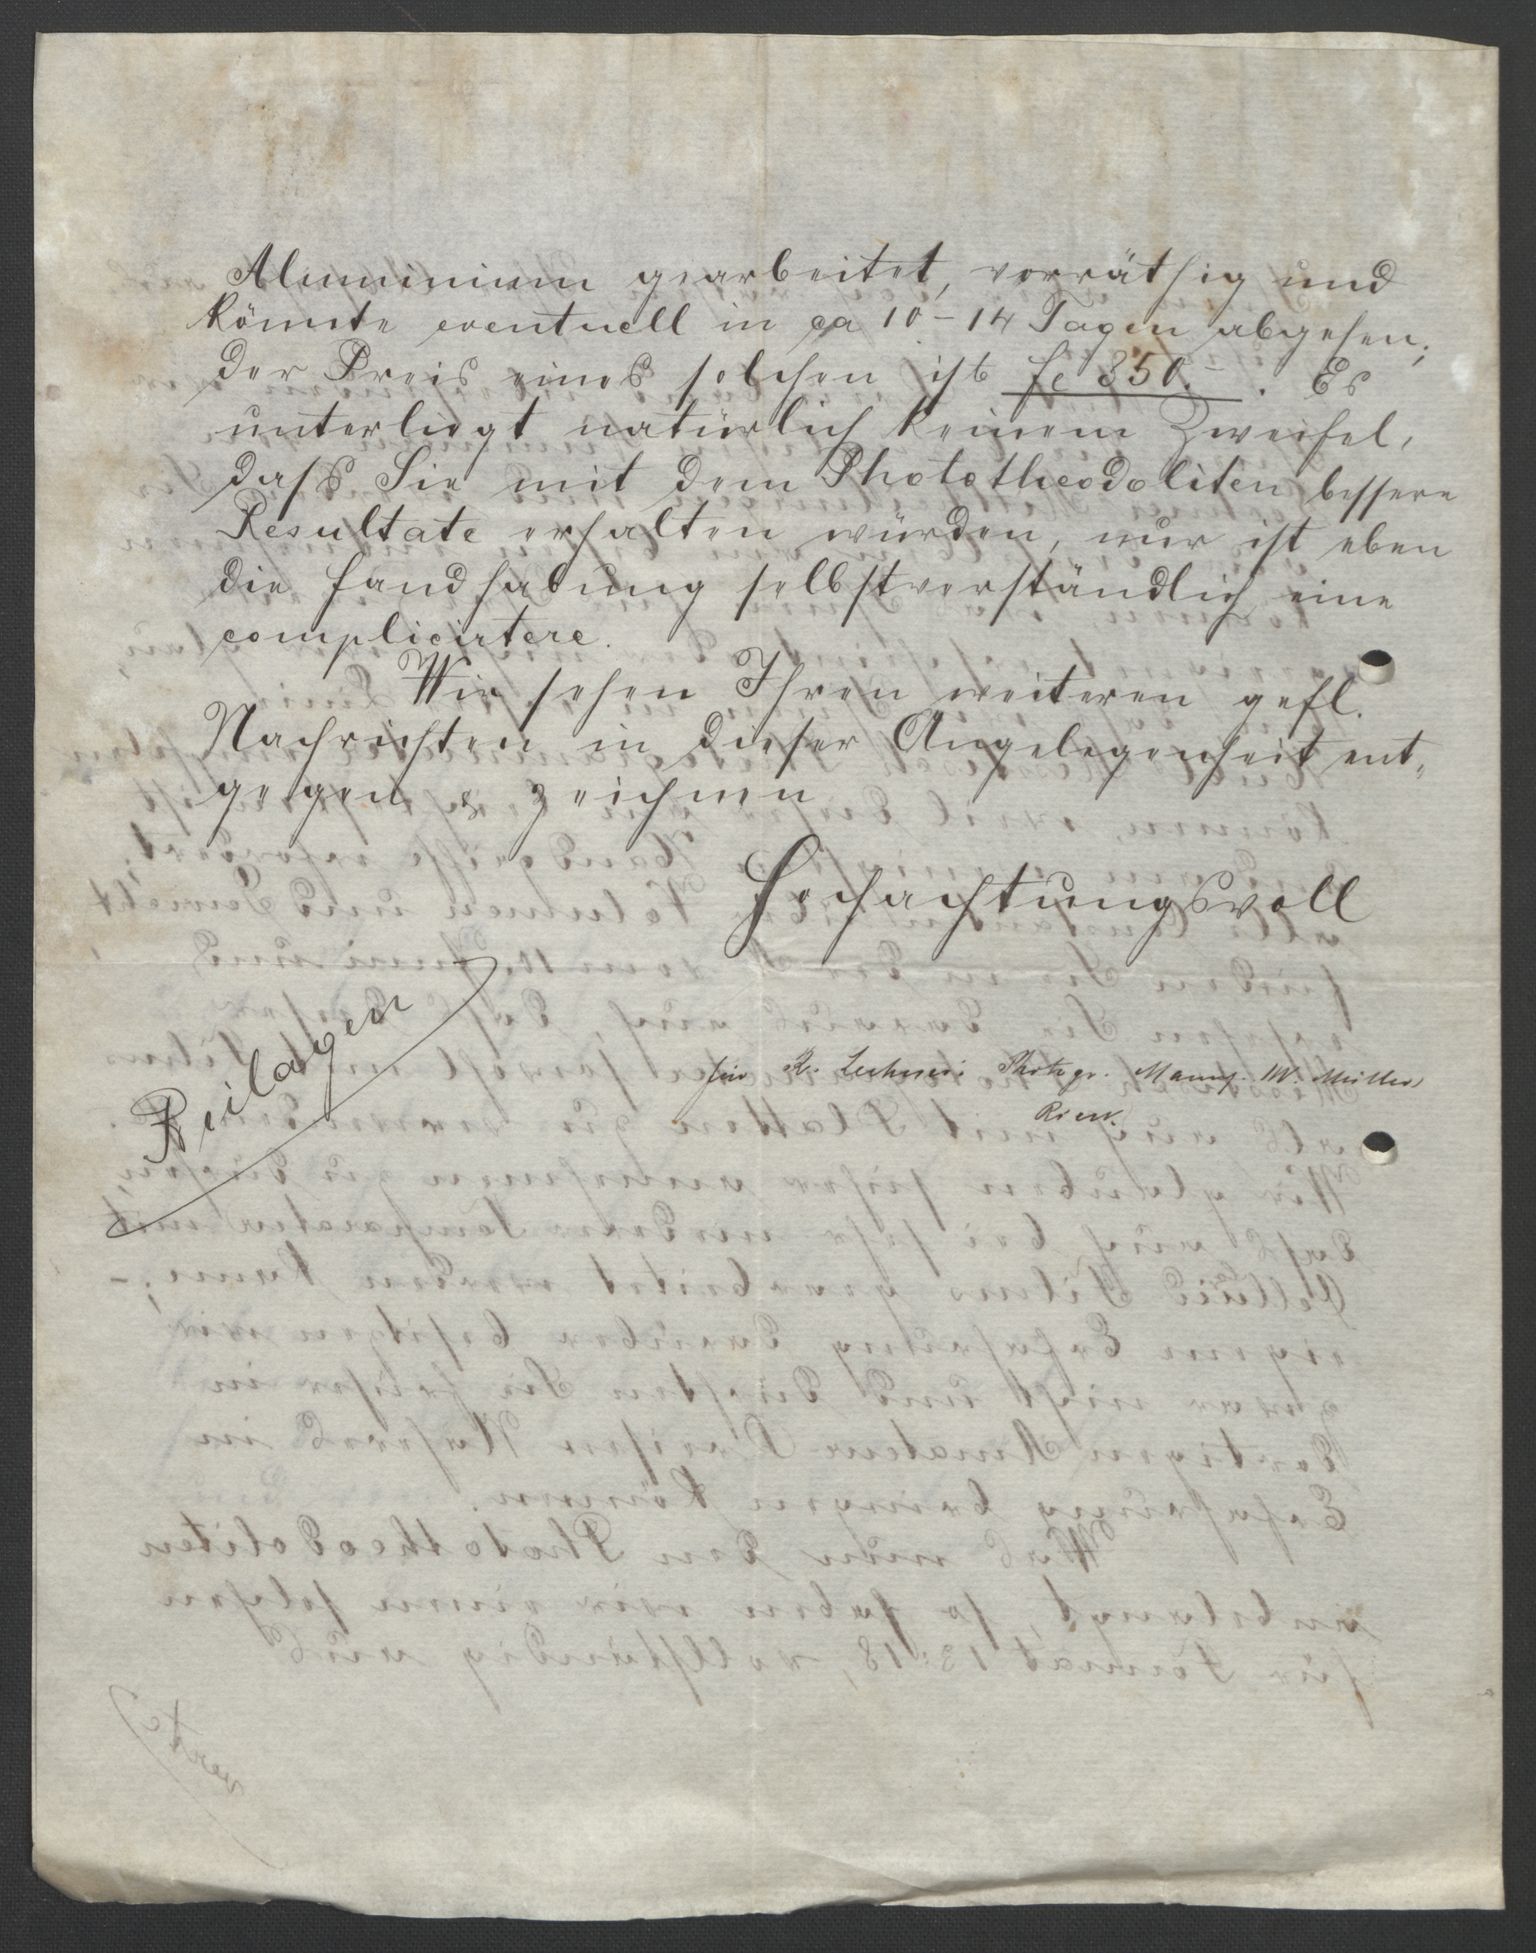 Aluminium gearbeitet, vorräthig und
könnte eventuell in ca 10 - 14 Tagen abgehen;
der Preis eines solchen ist fl 350.- . Es
unterliegt natürlich keinem Zweifel,
dass Sie mit dem Phototheodoliten bessere
Resultate erhalten würden, nur ist eben
die Handhabung selbstverständlich eine
complicirtere.
Wir sehen Ihren weiteren gefl.
Nachrichten in dieser Angelegenheit ent-
gegen & zeichnen
Hochachtungsvoll
Beilagen
für R. Lechner's Photogr. Manuf. W. Müller